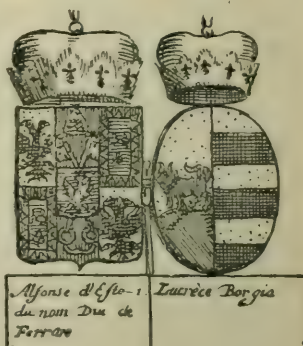 Alfonse d'Este 1.
du nom Duc de
Ferrare
Lucrèce Borgia